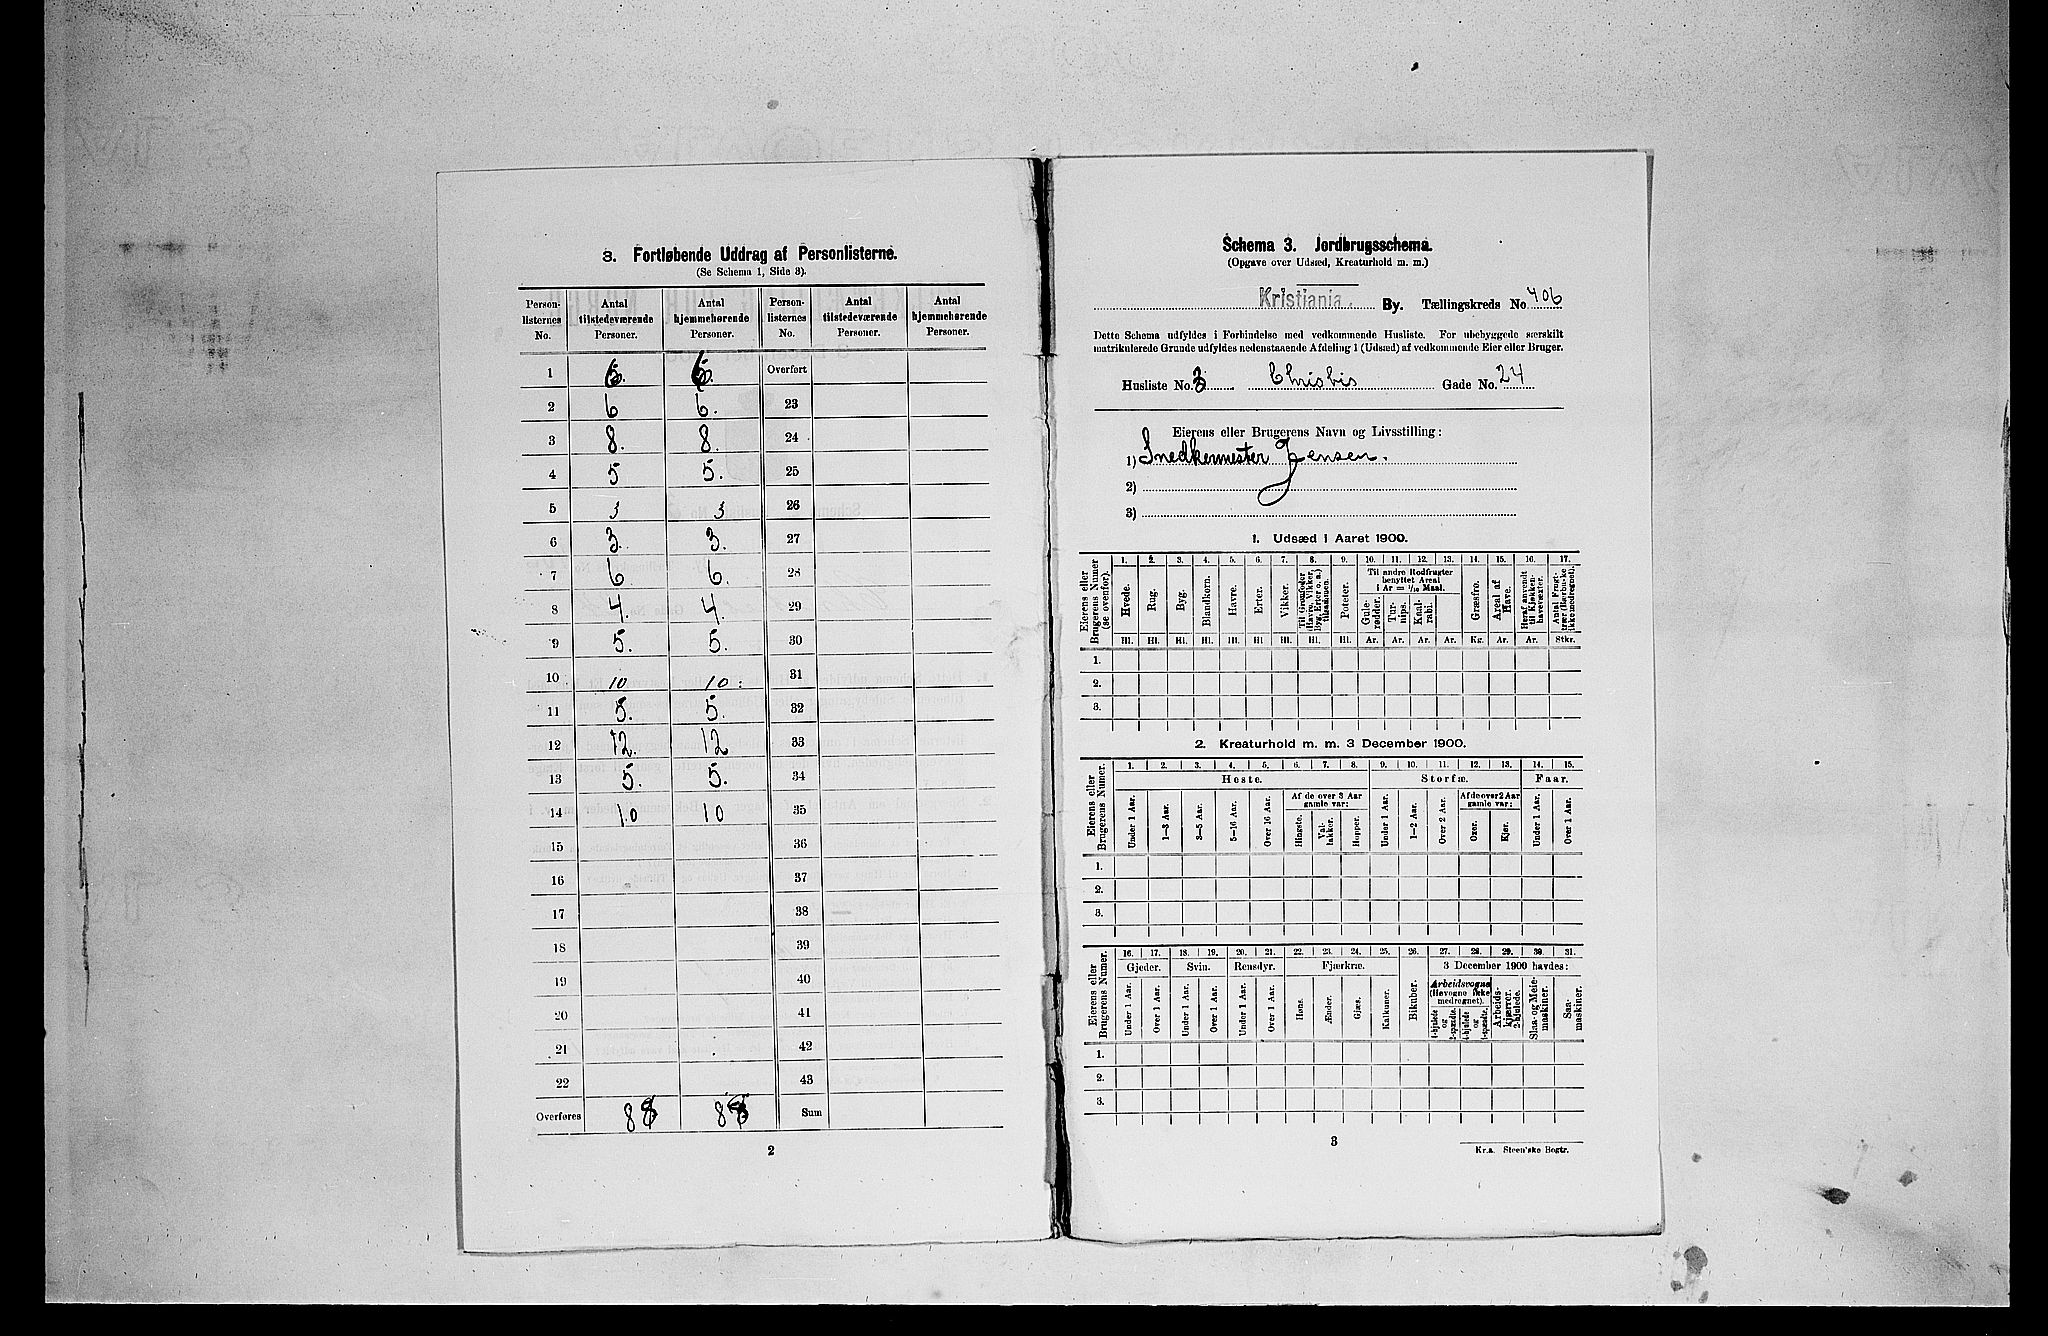 3. Fortløbende Uddrag af Personlisterne.
(Se Schema 1, Side 3).
Person-listernes No. | Antal tilstedeværende Personer. | Antal hjemmehørende Personer. | Person-listernes No. | Antal tilstedeværende Personer. | Antal hjemmehørende Personer.
1 | 6. | 6. | Overført
2 | 6 | 6. | 23
3 | 8. | 8. | 24
4 | 5 | 5. | 25
5 | 3 | 3 | 26
6 | 3. | 3. | 27
7 | 6 | 6 | 28
8 | 4. | 4. | 29
9 | 5. | 5. | 30
10 | 10 | 10. | 31
11 | 5. | 5. | 32
12 | 12. | 12 | 33
13 | 5. | 5. | 34
14 | 10 | 10 | 35
15 | 36
16 | 37
17 | 38
18 | 39
19 | 40
20 | 41
21 | 42
22 | 43
Overføres | 88 | 88 | Sum
2
Schema 3. Jordbrugsschema.
(Opgave over Udsæd, Kreaturhold m. m.)
Kristiania. By. Tællingskreds No 406
Dette Schema udfyldes i Forbindelse med vedkommende Husliste. For ubebyggede særskilt
matrikulerede Grunde udfyldes nedenstaaende Afdeling 1 (Udsæd) af vedkommende Eier eller Bruger.
Husliste No. 3 Christies Gade No. 24
Eierens eller Brugerens Navn og Livsstilling:
1) Snedkermester Jensen.
2)
3)
1. Udsæd i Aaret 1900.
Eierens eller Brugerens Numer (se ovenfor).
1. 2. 3. 4. 5. 6. 7. 8. 9. 10. 11. 12. 13. 14. 15. 16. 17.
Hvede. Rug. Byg. Blandkorn. Havre. Erter. Vikker. Til Grønfoder (Havre, Vikker, Byg, Erter o. a.) tilsammen. Poteter.
Til andre Rodfrugter benyttet Areal 1 Ar = 1/10 Maal.
Gule-rødder. Tur-nips. Kaal-rabi.
Græsfrø. Areal af Have. Heraf anvendt til Kjøkken-havevæxter. Antal Frugt-trær (Bærbuske ikke medregnet).
Hl. Hl. Hl. Hl. Hl. Hl. Hl. Hl. Hl. Ar. Ar. Ar. Ar. Kg. Ar. Ar. Stkr.
1.
2.
3.
2. Kreaturhold m. m. 3 December 1900.
Eierens eller Brugerens Numer.
1. 2. 3. 4. 5. 6. 7. 8. 9. 10. 11. 12. 13. 14. 15.
Heste. Storfæ. Faar.
Af de over 3 Aar gamle var: Af de over 2 Aar gamle var:
Under 1 Aar. 1—3 Aar. 3—5 Aar. 5—16 Aar. Over 16 Aar. Hingste. Val-lakker. Hopper. Under 1 Aar. 1—2 Aar. Over 2 Aar. Oxer. Kjør. Under 1 Aar. Over 1 Aar.
1.
2.
3.
Eierens eller Brugerens Numer.
16. 17. 18. 19. 20. 21. 22. 23. 24. 25. 26. 27. 28. 29. 30. 31.
Gjeder. Svin. Rensdyr. Fjærkræ. Bikuber. 3 December 1900 havdes:
Under 1 Aar. Over 1 Aar. Under 1 Aar. Over 1 Aar. Under 1 Aar. Over 1 Aar. Høns. Ænder. Gjæs. Kalkuner.
Arbeidsvogne (Høvogne ikke medregnet).
4-hjulede og 2-spændte. 4-hjulede og 1-spændte. Arbeids-kjærrer, 2-hjulede. Slaa- og Meie-maskiner. Saa-maskiner.
1.
2.
3.
3
Kr.a. Steen'ske Bogtr.